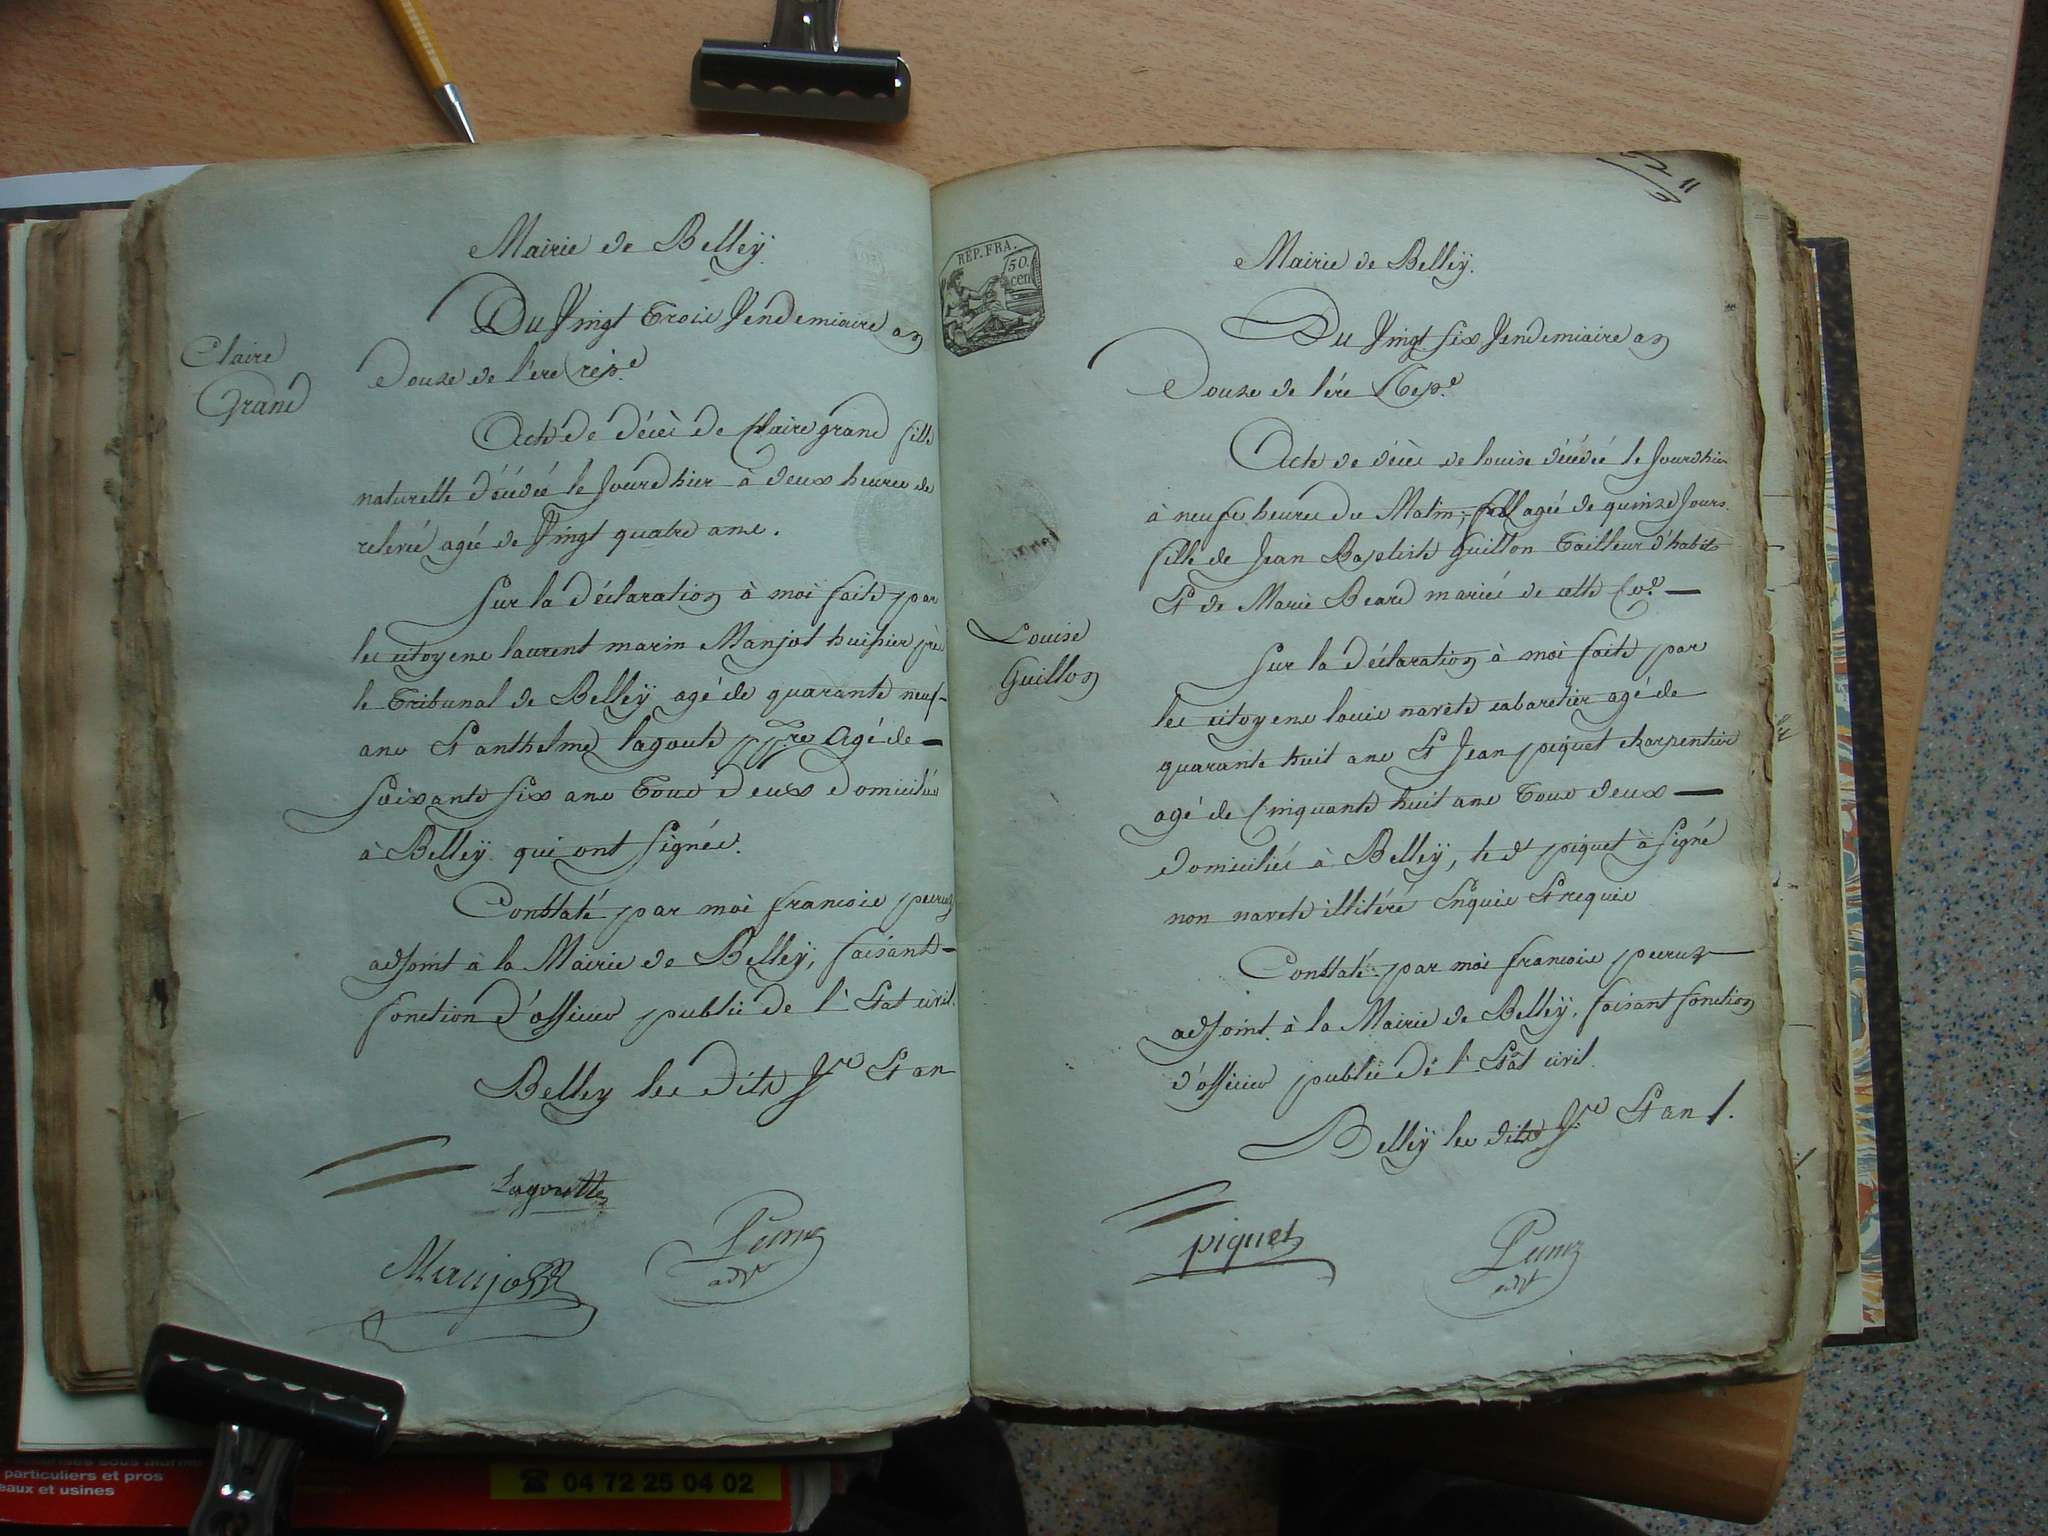 Mairie de Belleÿ.
Du Vingt trois Vendemiaire an
Douze de l'ere rép.e
Claire
Grand
Acte de décès de Claire grand fille
naturelle décédée le Jourdhier à deux heures de
relevée agée de Vingt quatre ans.
Sur la déclaration à moi faite par
les citoyens laurent marin Manjot huissier près
le tribunal de Belleÿ agé de quarante neuf
ans Et anthelme lagoute pp.re agé de
soixante six ans tous deux domiciliés
à Belleÿ qui ont signés.
Constaté par moi francois peruz
adjoint à la Mairie de Belleÿ, faisant
fonction d'officier public de l'Etat civil.
Belley les dits J.r Et an
Lagoutte
Manjot
adj.t
REP. FRA.
50.
cen.
Mairie de Belleÿ.
Du Vingt six Vendemiaire an
Douze de l'ére Rep.e
Acte de décès de louise décédée le Jourdhui
à neufs heures du Matin, agée de quinze Jours
fille de Jean Baptiste Guillon Tailleur d'habits
Et de Marie Beard mariés de cette Co.e
Louise
Guillon
Sur la déclaration à moi faite par
les citoyens louis navete cabaretier agé de
quarante huit ans Et Jean piquet charpentier
agé de Cinquante huit ans tous deux
domiciliés à Belleÿ, le d.t piquet à signé
non navete illitéré Enquis Et requis
Constaté par moi francois peruz
adjoint à la Mairie de Belleÿ, faisant fonction
d'officier public de l'Etat civil.
Belleÿ les dits J.r Et an
piquet
adj.t
particuliers et pros
eaux et usines
04 72 25 04 02